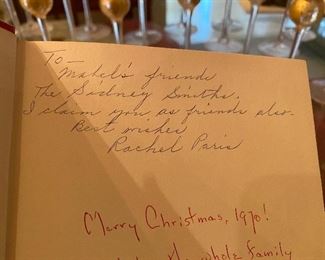 To—
Mabel's friends
The Sidney Smiths.
I claim you as friends also.
Best wishes
Rachel Paris
Merry Christmas, 1970!
the whole family